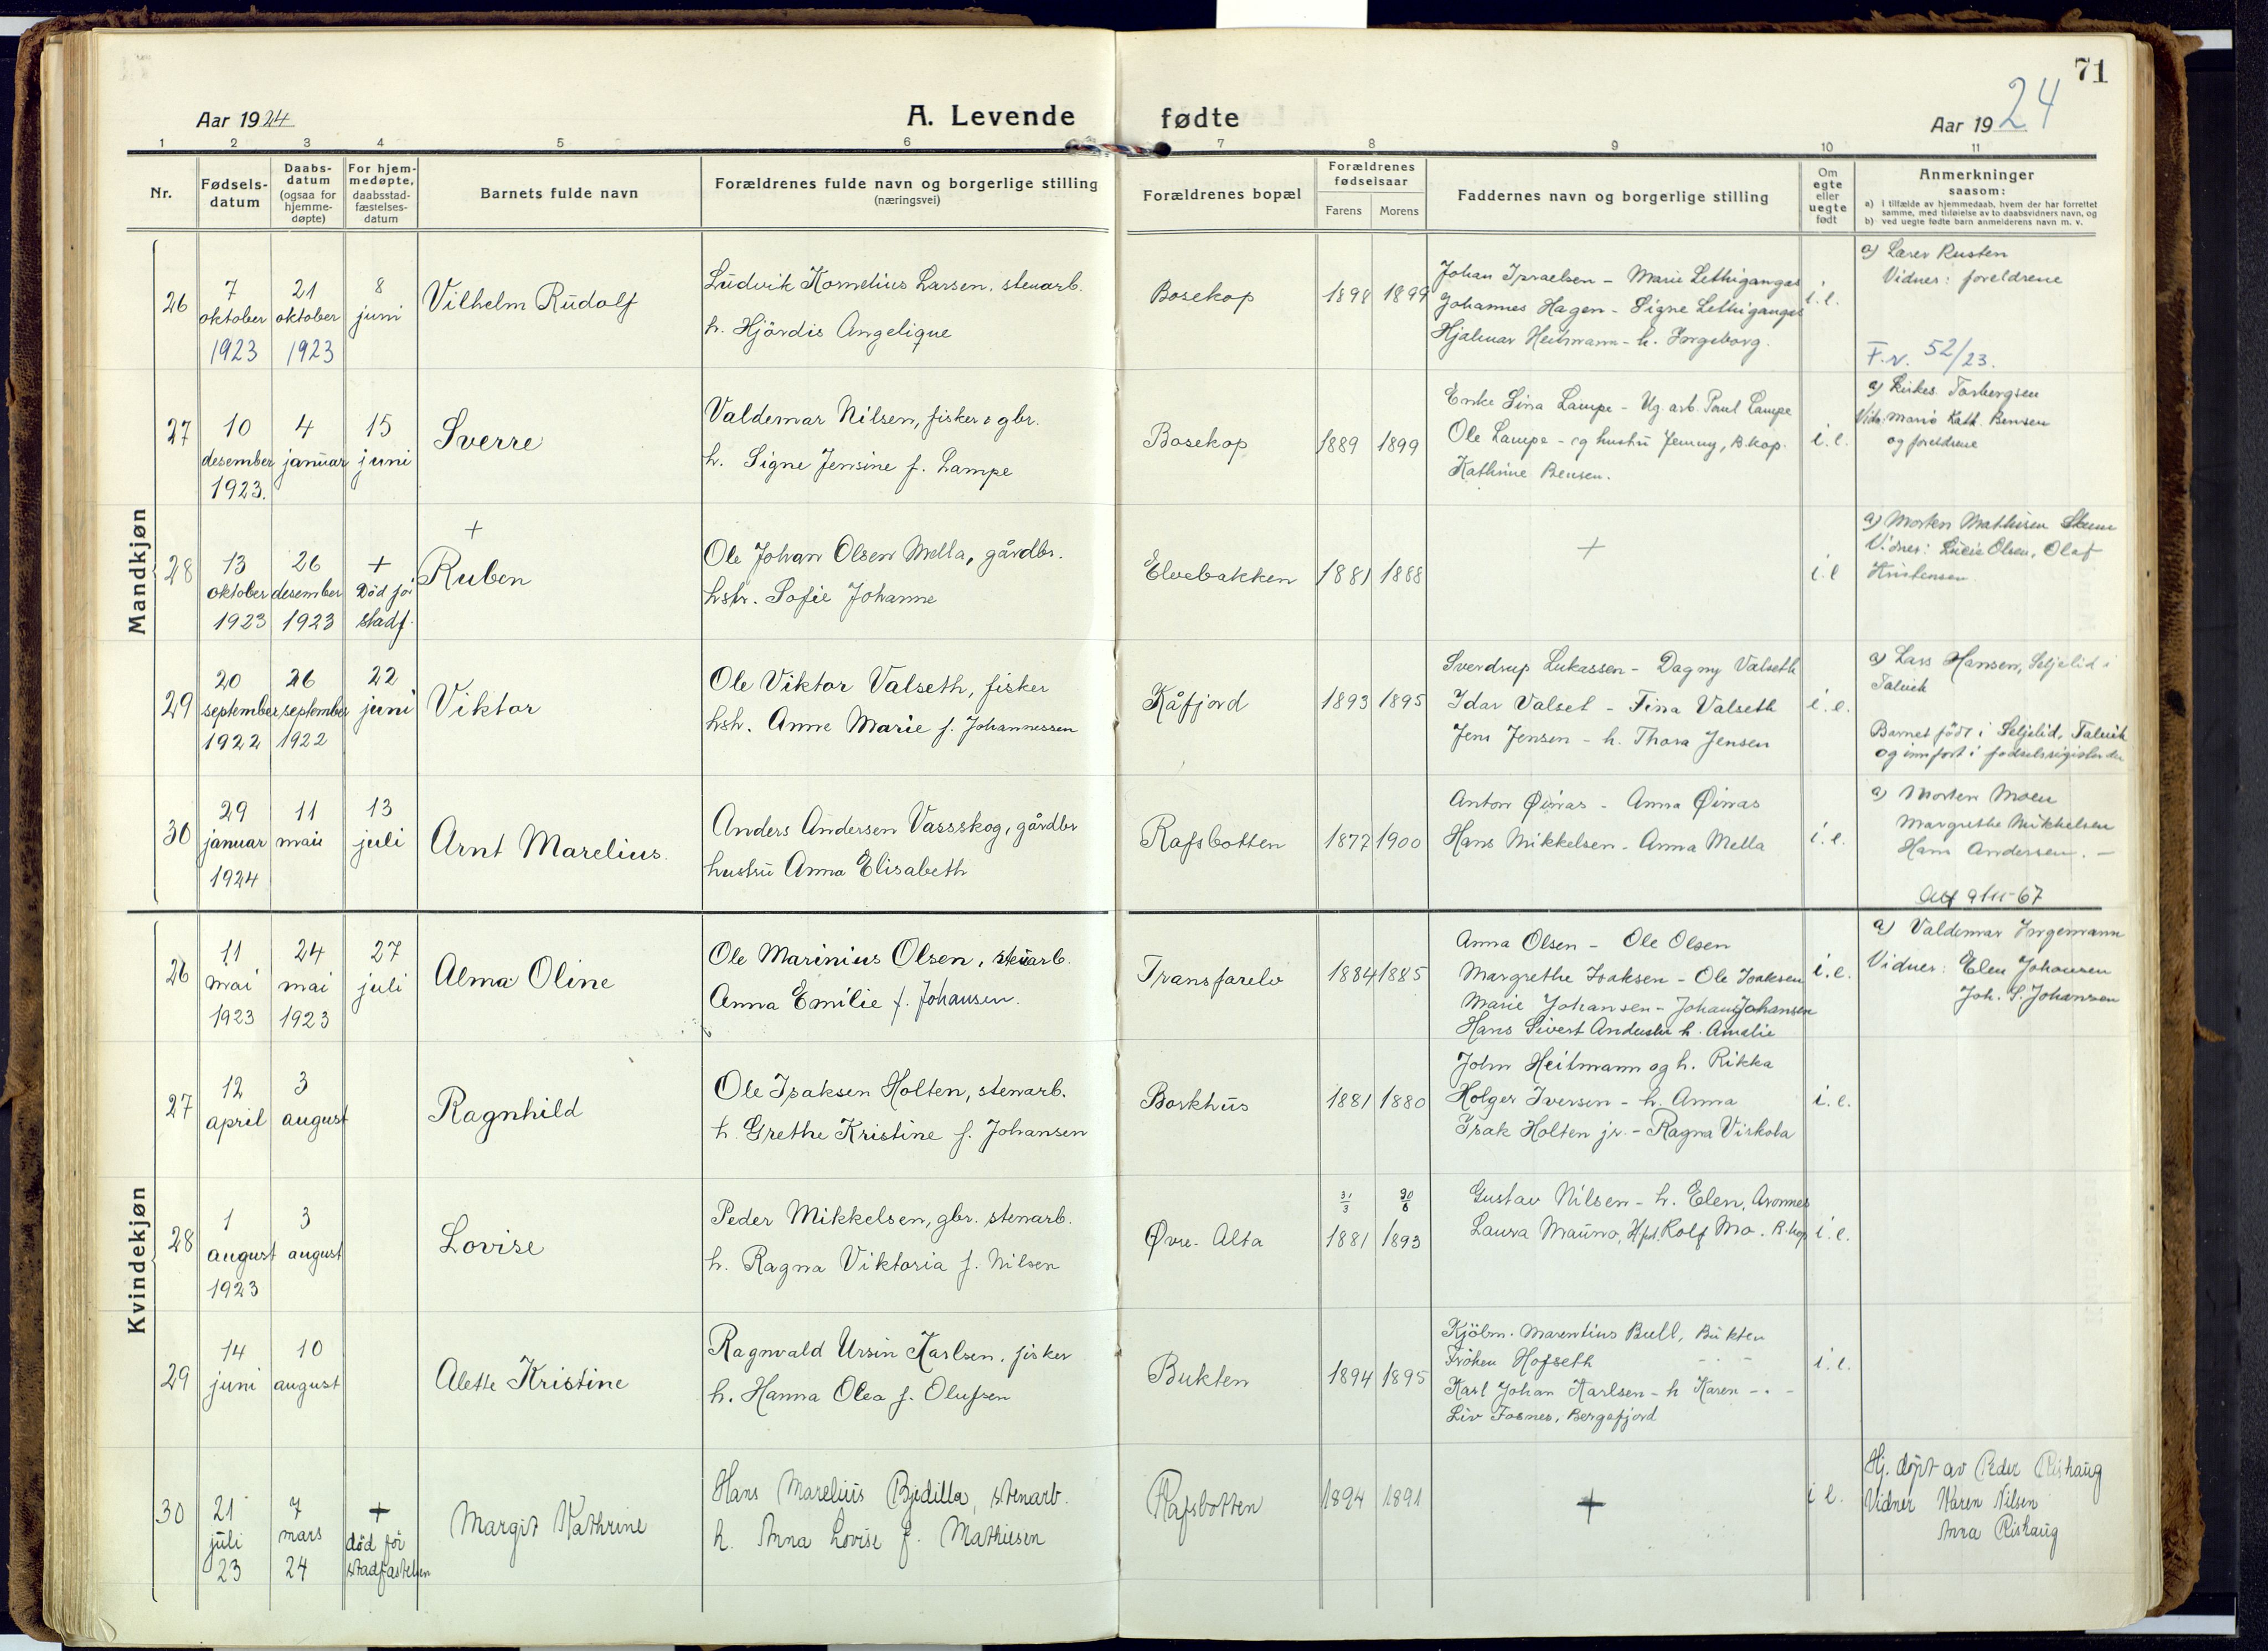 71
Aar 1924
A. Levende fødte
Aar 1924
1 2 3 4 5 6 7 8 9 10 11
Nr.
Fødsels-datum
Daabs-datum (ogsaa for hjemme-døpte)
For hjem-medøpte, daabsstad-fæstelses-datum
Barnets fulde navn
Forældrenes fulde navn og borgerlige stilling (næringsvei)
Forældrenes bopæl
Forældrenes fødselsaar
Farens Morens
Faddernes navn og borgerlige stilling
Om egte eller uegte født
Anmerkninger saasom:
a) i tilfælde av hjemmedaab, hvem der har forrettet samme, med tilføielse av to daabsvidners navn, og
b) ved uegte fødte barn anmelderens navn m. v.
Mandkjøn
26
7 oktober 1923
21 oktober 1923
8 juni
Vilhelm Rudolf
Ludvik Kornelius Larsen, stenarb.
h. Hjördis Angelique
Bosekop
1898 1899
Johan Israelsen - Marie Lethigangas
Johannes Hagen - Signe Lethigangas
Hjalmar Heitmann - h. Ingeborg.
i. e.
a) Lærer Rusten
Vidner: foreldrene
F. r. 52/23.
27
10 desember 1923.
4 januar
15 juni
Sverre
Valdemar Nilsen, fisker o gbr.
h. Signe Jensine f. Lampe
Bosekop
1889 1899
Enke Sina Lampe - Ug. arb. Paul Lampe
Ole Lampe - og hustru Jenny, B.kop.
Kathrine Bensen.
i. e.
a) Kirkes. Torbergsen
Vidn. Kath. Bensen
og foreldrene
28
13 oktober 1923
26 desember 1923
+ Død för stadf.
+
Ruben
Ole Johan Olsen Mella, gårdbr.
hstr. Sofie Johanne
Elvebakken
1881 1888
+
i. e
a) Morten Mathisen
Vidner: Lucie Olsen, Olaf
Kristensen.
29
20 september 1922
26 september 1922
22 juni
Viktor
Ole Viktor Valseth, fisker
hstr. Anne Marie f. Johannessen
Kåfjord
1893 1895
Sverdrup Lukassen - Dagny Valseth
Idar Valset - Fina Valseth
Jens Jensen - h. Thora Jensen
i. e.
a) Lars Hansen, Seljelid i
Talvik
Barnet född i Seljelid, Talvik
og innfört i födselsregister der
30
29 januar 1924
11 mai
13 juli
Arnt Marelius.
Anders Andersen Vassskog, gårdbr
hustru Anna Elisabeth
Rafsbotten
1877 1900
Anton Øinas - Anna Øinas
Hans Mikkelsen - Anna Mella
i. e.
a) Morten Moen
Margrethe Mikkelsen
Hans Andersen. -
67
Kvindekjøn
26
11 mai 1923
24 mai 1923
27 juli
Alma Oline
Ole Marinius Olsen, stenarb.
Anna Emilie f. Johansen.
Transfarelv
1884 1885
Anna Olsen - Ole Olsen
Margrethe Isaksen - Ole Isaksen
Marie Johansen - Johan Johansen
Hans Sivert Andersen h. Amalie
i. e.
a) Valdemar Ingemann
Vidner: Elen Johansen
Joh. S. Johansen
27
12 april
3 august
Ragnhild
Ole Isaksen Holten, stenarb.
h. Grethe Kristine f. Johansen
Borkhus
1881 1880
John Heitmann og h. Rikka
Holger Iversen - h. Anna
Isak Holten jr. - Ragna Virkola
i. e.
28
1 august 1923
3 august
Lovise
Peder Mikkelsen, gbr. stenarb.
h. Ragna Viktoria f. Nilsen
Øvre-Alta
31/3 1881 30/6 1893
Gustav Nilsen - h. Elen, Aronnes
Laura Mauno, Rolf Mo. B.kop
i. e.
29
14 juni
10 august
Alette Kristine
Ragnvald Ursin Karlsen, fisker
h. Hanna Olea f. Olufsen
Bukten
1894 1895
Kjöbm. Marentius Bull, Bukten
Fröken Hofseth - . - -
Karl Johan Karlsen - h Karen - . -
Liv Fosnes, Bergsfjord
i. e.
30
21 juli 23
7 mars 24
+ död för stadfæstelsen
Margit Kathrine
Hans Marelius Bjedilla, stenarb.
h. Anna Lovise f. Mathiesen
Rafsbotten
1894 1891
+
i e.
Hj. döpt av Peder Rishaug
Vidner Karen Nilsen
Anna Rishaug